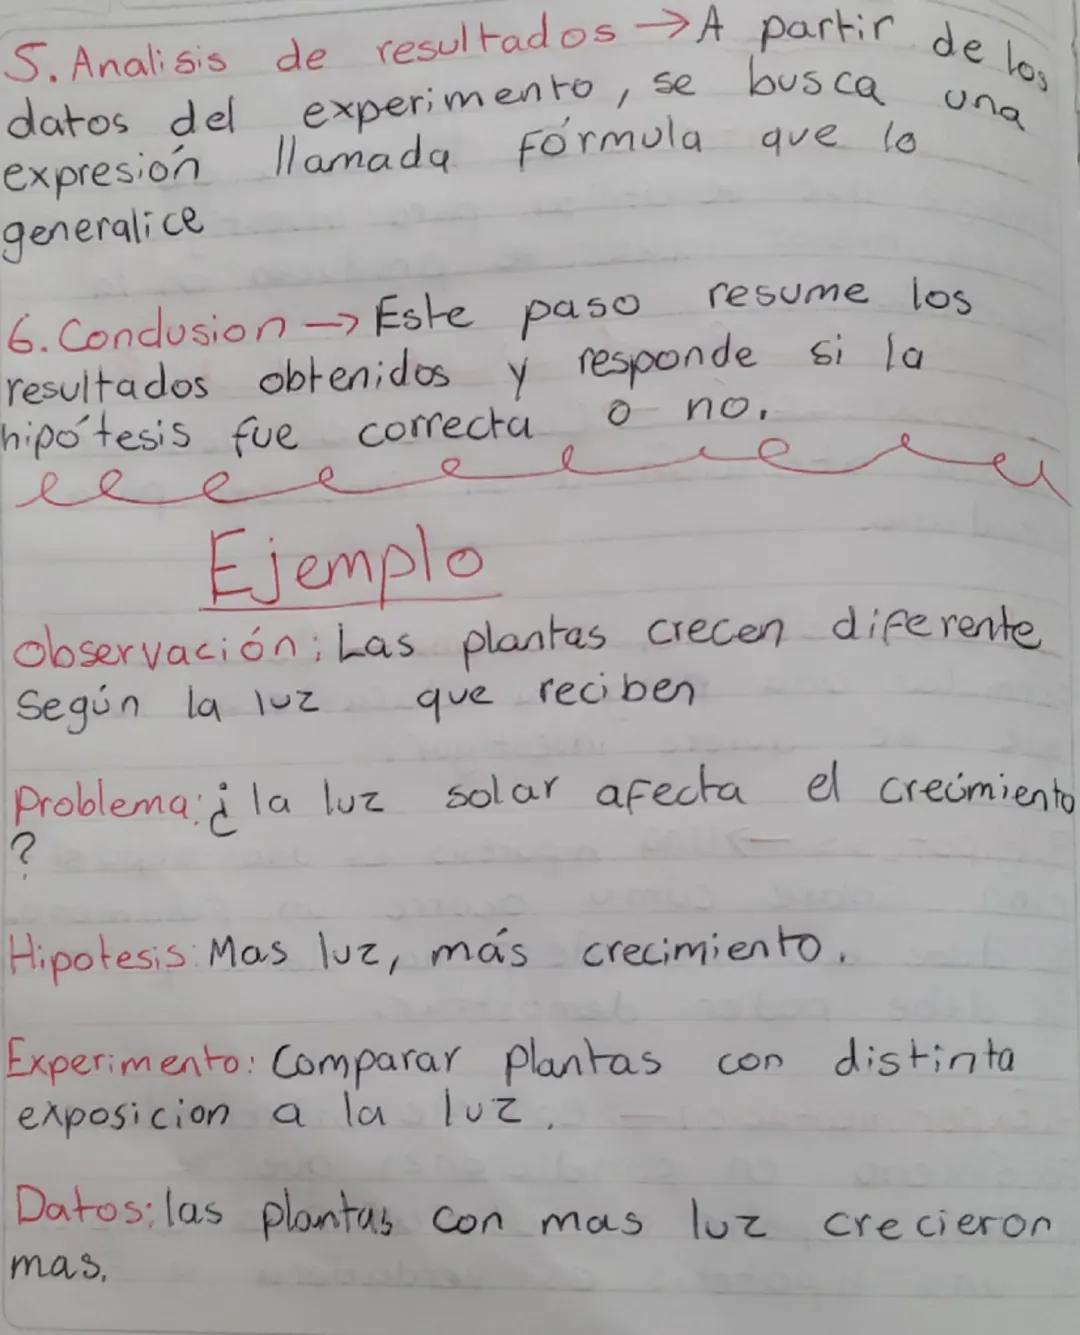 5. Analisis de resultados → A partir de los
datos del experimento, se busca una
expresión llamada Fórmula que lo
generalice
6. Conclusion → Este paso resume los
resultados obtenidos y responde si la
hipótesis fue correcta o no.
Ejemplo
Observación: Las plantas crecen diferente
Según la luz que reciben
Problema: ¿la luz solar afecta el crecimiento
?
Hipotesis: Mas luz, más crecimiento.
Experimento: Comparar plantas con distinta
exposicion a la luz.
Datos: las plantas con mas luz crecieron
mas.